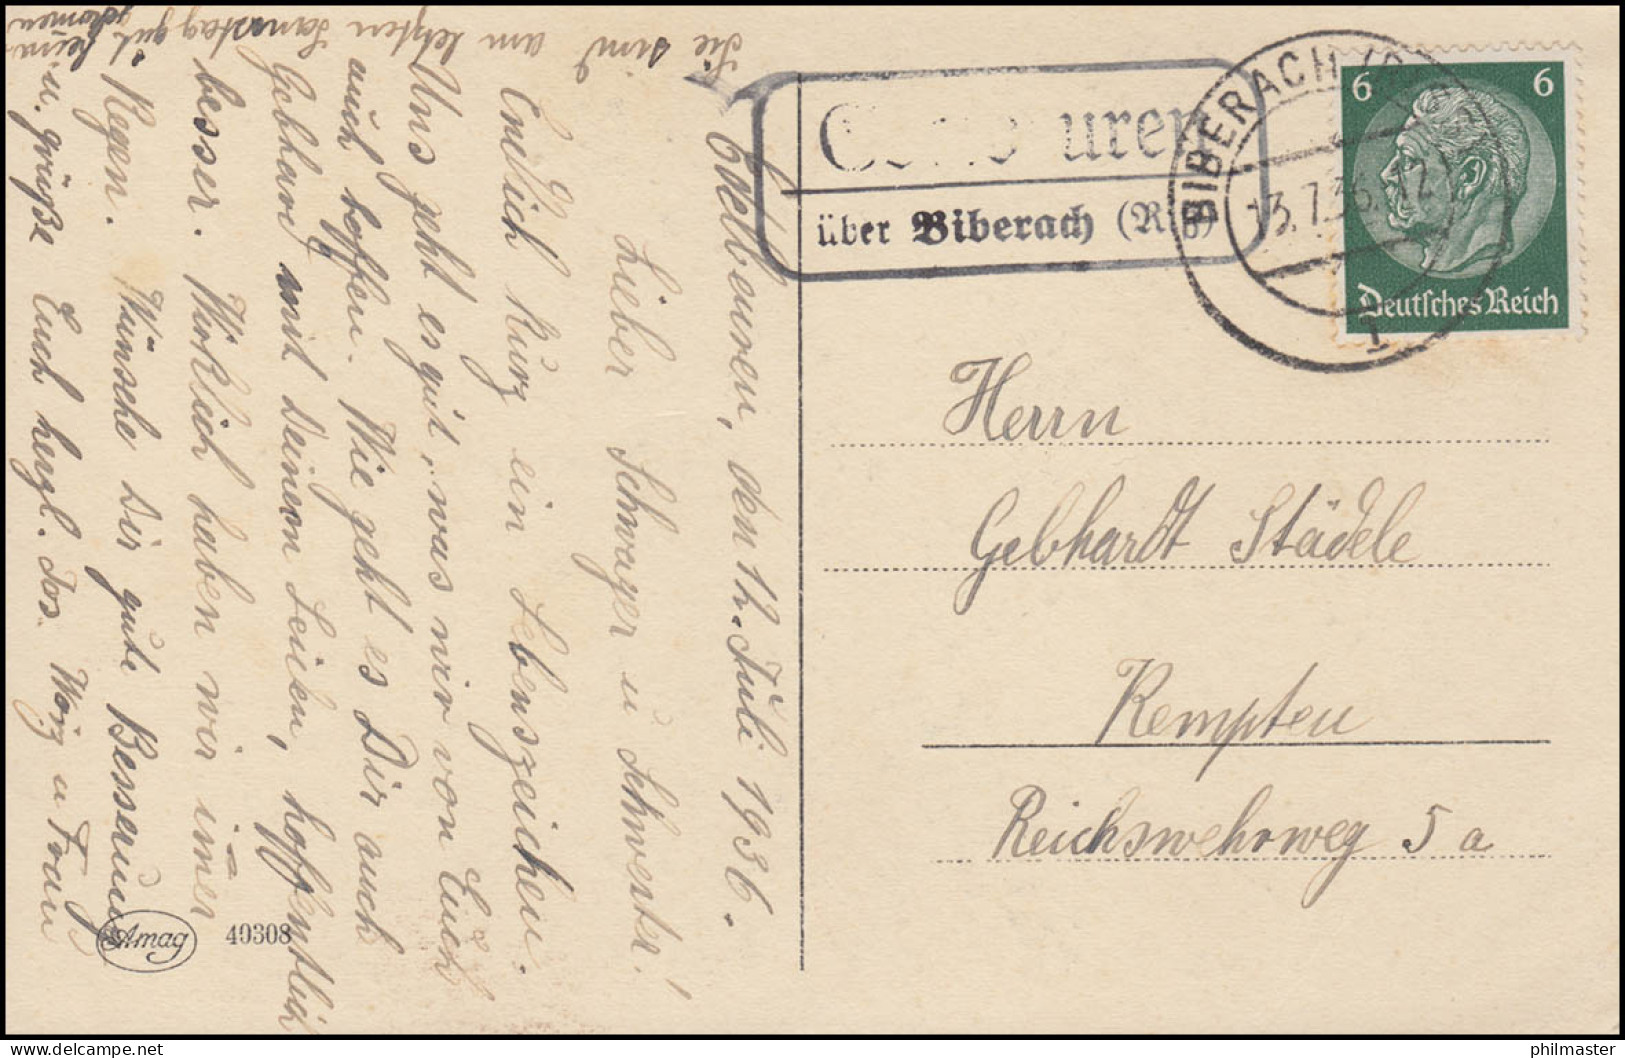 Edelbeuren, den 12. Juli 1936.
Lieber Schwager u Schwester!
Endlich kurz ein Lebenszeichen.
Uns geht es gut, was wir von Euch
auch hoffen. Wie geht es Dir auch
Gebhard mit Deinem Leiden, hoffentlich
besser. Wirklich haben wir im̄er
Regen. Wünsche Dir gute Besserung
u. grüße Euch herzl. Jos. u Frau
Sie sind am letzten Samstag gut heim
gekomen
uren
über Biberach (Riß)
BIBERACH (RISS)
13.7.36.-12
1
6 6
Deutsches Reich
Herrn
Gebhardt Städele
Kempten
Reichswehrweg 5 a
Amag 40308
philmaster